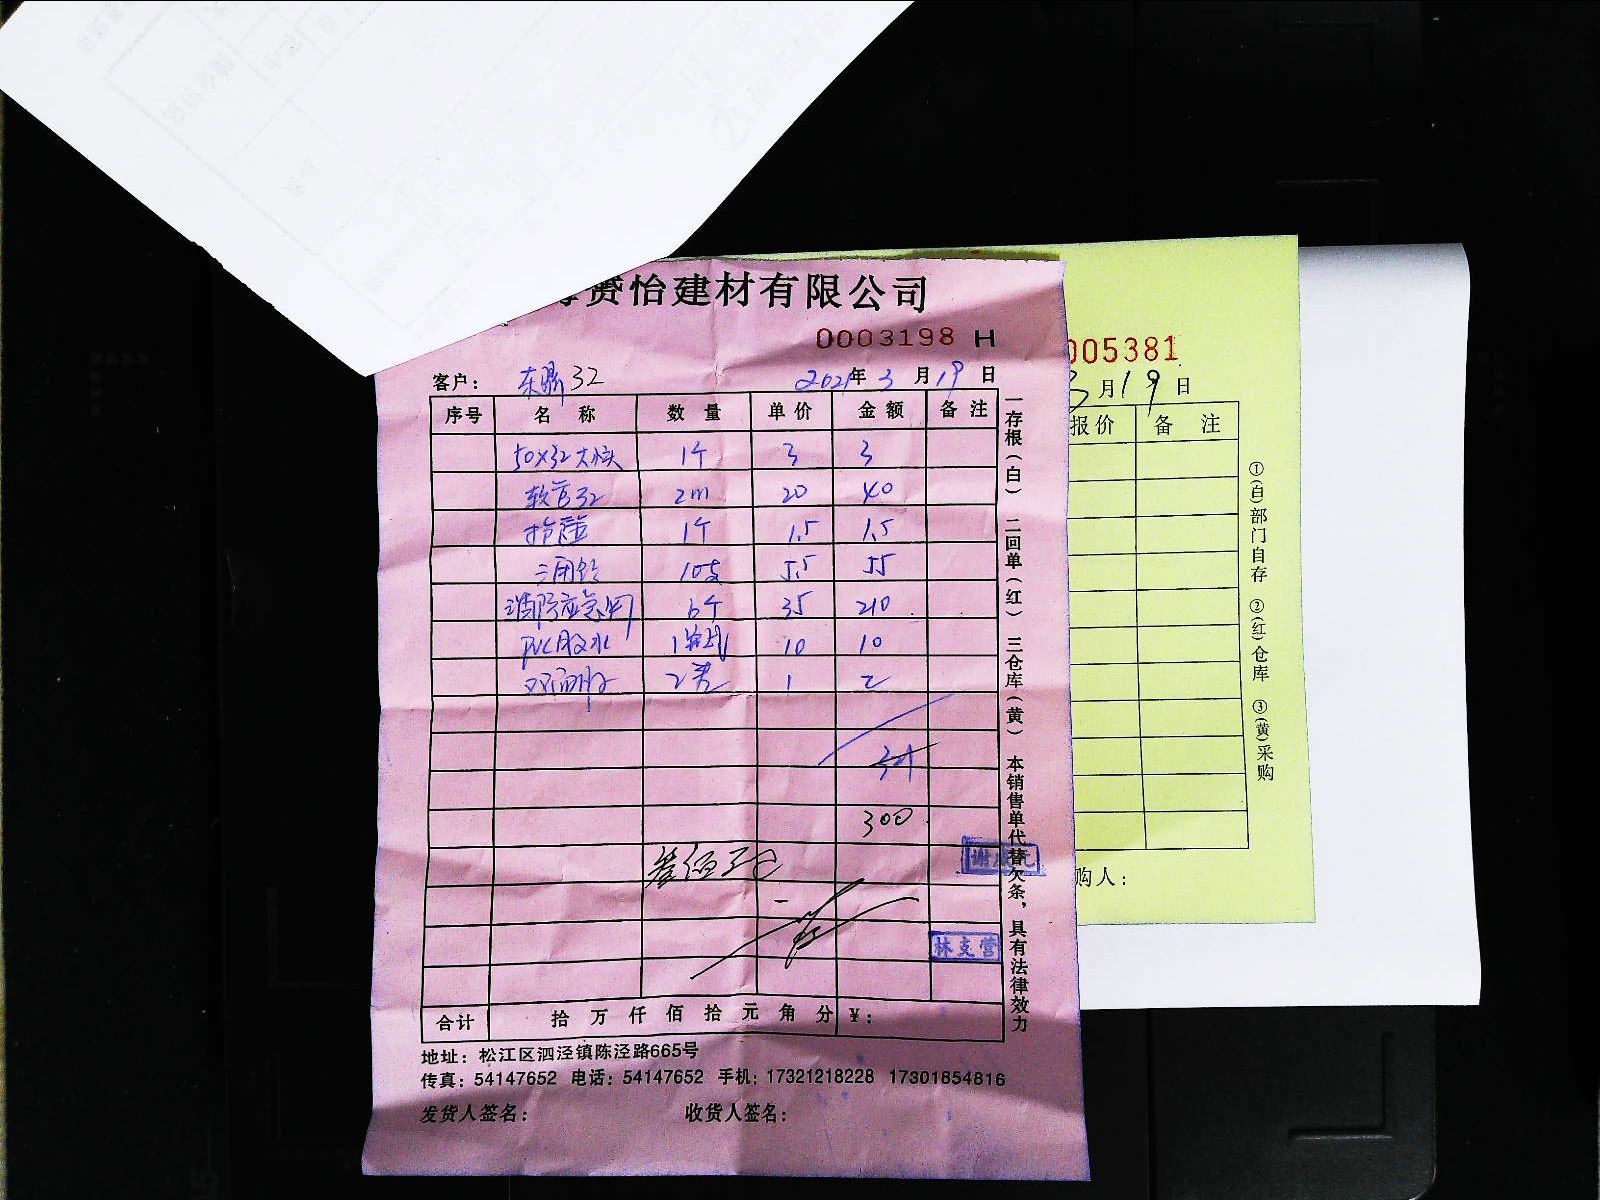 赟怡建材有限公司
0003198 H
客户： 东鼎32 2021年3月19日
序号 名称 数量 单价 金额 备注
50×32大小头 1个 3 3
软管32 2m 20 40
1个 1.5 1.5
10支 5.5 55
消防应急灯 6个 35 210
PVC胶水 1 10 10
双面胶 2卷 1 2
321
300
叁佰元
林支营
合计 拾万仟佰拾元角分 ¥：
地址：松江区泗泾镇陈泾路665号
传真：54147652 电话：54147652 手机：17321218228 17301854816
发货人签名： 收货人签名：
一存根（白） 二回单（红） 三仓库（黄） 本销售单代替欠条，具有法律效力
005381
3月19日
报价 备注
购人：
①(白)部门自存 ②(红)仓库 ③(黄)采购